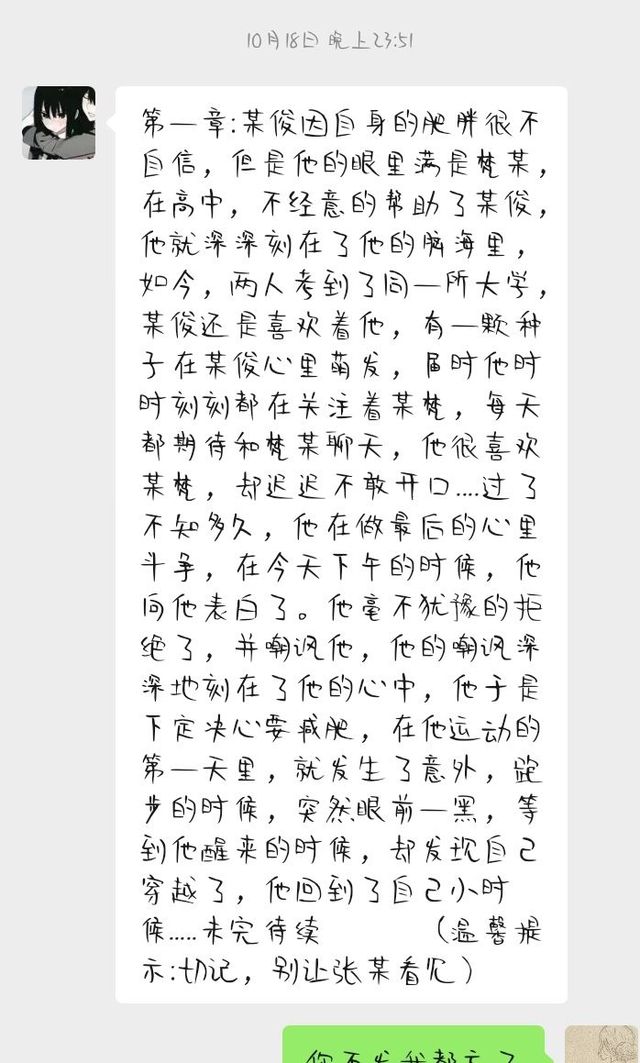 10月18日 晚上23:51
第一章:某俊因自身的肥胖很不
自信，但是他的眼里满是梵某，
在高中，不经意的帮助了某俊，
他就深深刻在了他的脑海里，
如今，两人考到了同一所大学，
某俊还是喜欢着他，有一颗种
子在某俊心里萌发，届时他时
时刻刻都在关注着某梵，每天
都期待和梵某聊天，他很喜欢
某梵，却迟迟不敢开口....过了
不知多久，他在做最后的心里
斗争，在今天下午的时候，他
向他表白了。他毫不犹豫的拒
绝了，并嘲讽他，他的嘲讽深
深地刻在了他的心中，他于是
下定决心要减肥，在他运动的
第一天里，就发生了意外，跑
步的时候，突然眼前一黑，等
到他醒来的时候，却发现自己
穿越了，他回到了自己小时
候.....未完待续 （温馨提
示:切记，别让张某看见）
你不发我都忘了